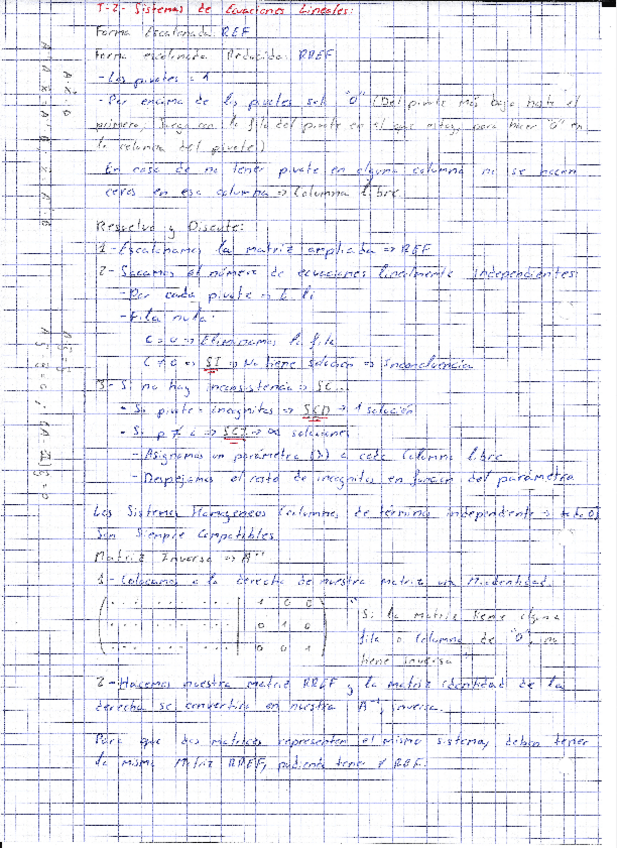 T-2- Sistemas de Ecuaciones Lineales:
Forma Escalonada: REF
Forma escalonada Reducida: RREF
- Los pivotes = 1
- Por encima de los pivotes sol "0" (Del pivote más bajo hasta el
primero, juega con la fila del pivote en el que estoy, para hacer "0" en
la columna del pivote)
En caso de no tener pivote en alguna columna no se hacen
ceros en esa columna => Columna libre.
Resuelve y Discute:
1- Escalonamos la matriz ampliada => REF
2- Sacamos el número de ecuaciones linealmente independientes:
- Por cada pivote => 1
- Fila nula:
C = 0 => Eliminamos la fila
C ≠ 0 => SI => No tiene solución => Inconsistencia
3- Si no hay inconsistencia => SC...
- Si pivotes = incognitas => SCD => 1 solución
- Si p ≠ i => SCI => ∞ soluciones
- Asignamos un parámetro (λ) a cada Columna libre
- Despejamos el resto de incognitas en función del parámetro
Los Sistemas Homogeneos (columnas de término independiente = todo 0)
Son Siempre Compatibles
Matriz Inversa => A⁻¹
1- Colocamos a la derecha de nuestra matriz una M. identidad.
1 0 0
0 1 0
0 0 1
"Si la matriz tiene alguna
fila o columna de "0", no
tiene inversa"
2- Hacemos nuestra matriz RREF y la matriz identidad de la
derecha se convertirá en nuestra A⁻¹, inversa.
Para que dos matrices representen el mismo sistema, deben tener
la misma Matriz RREF, pudiendo tener ≠ REF.